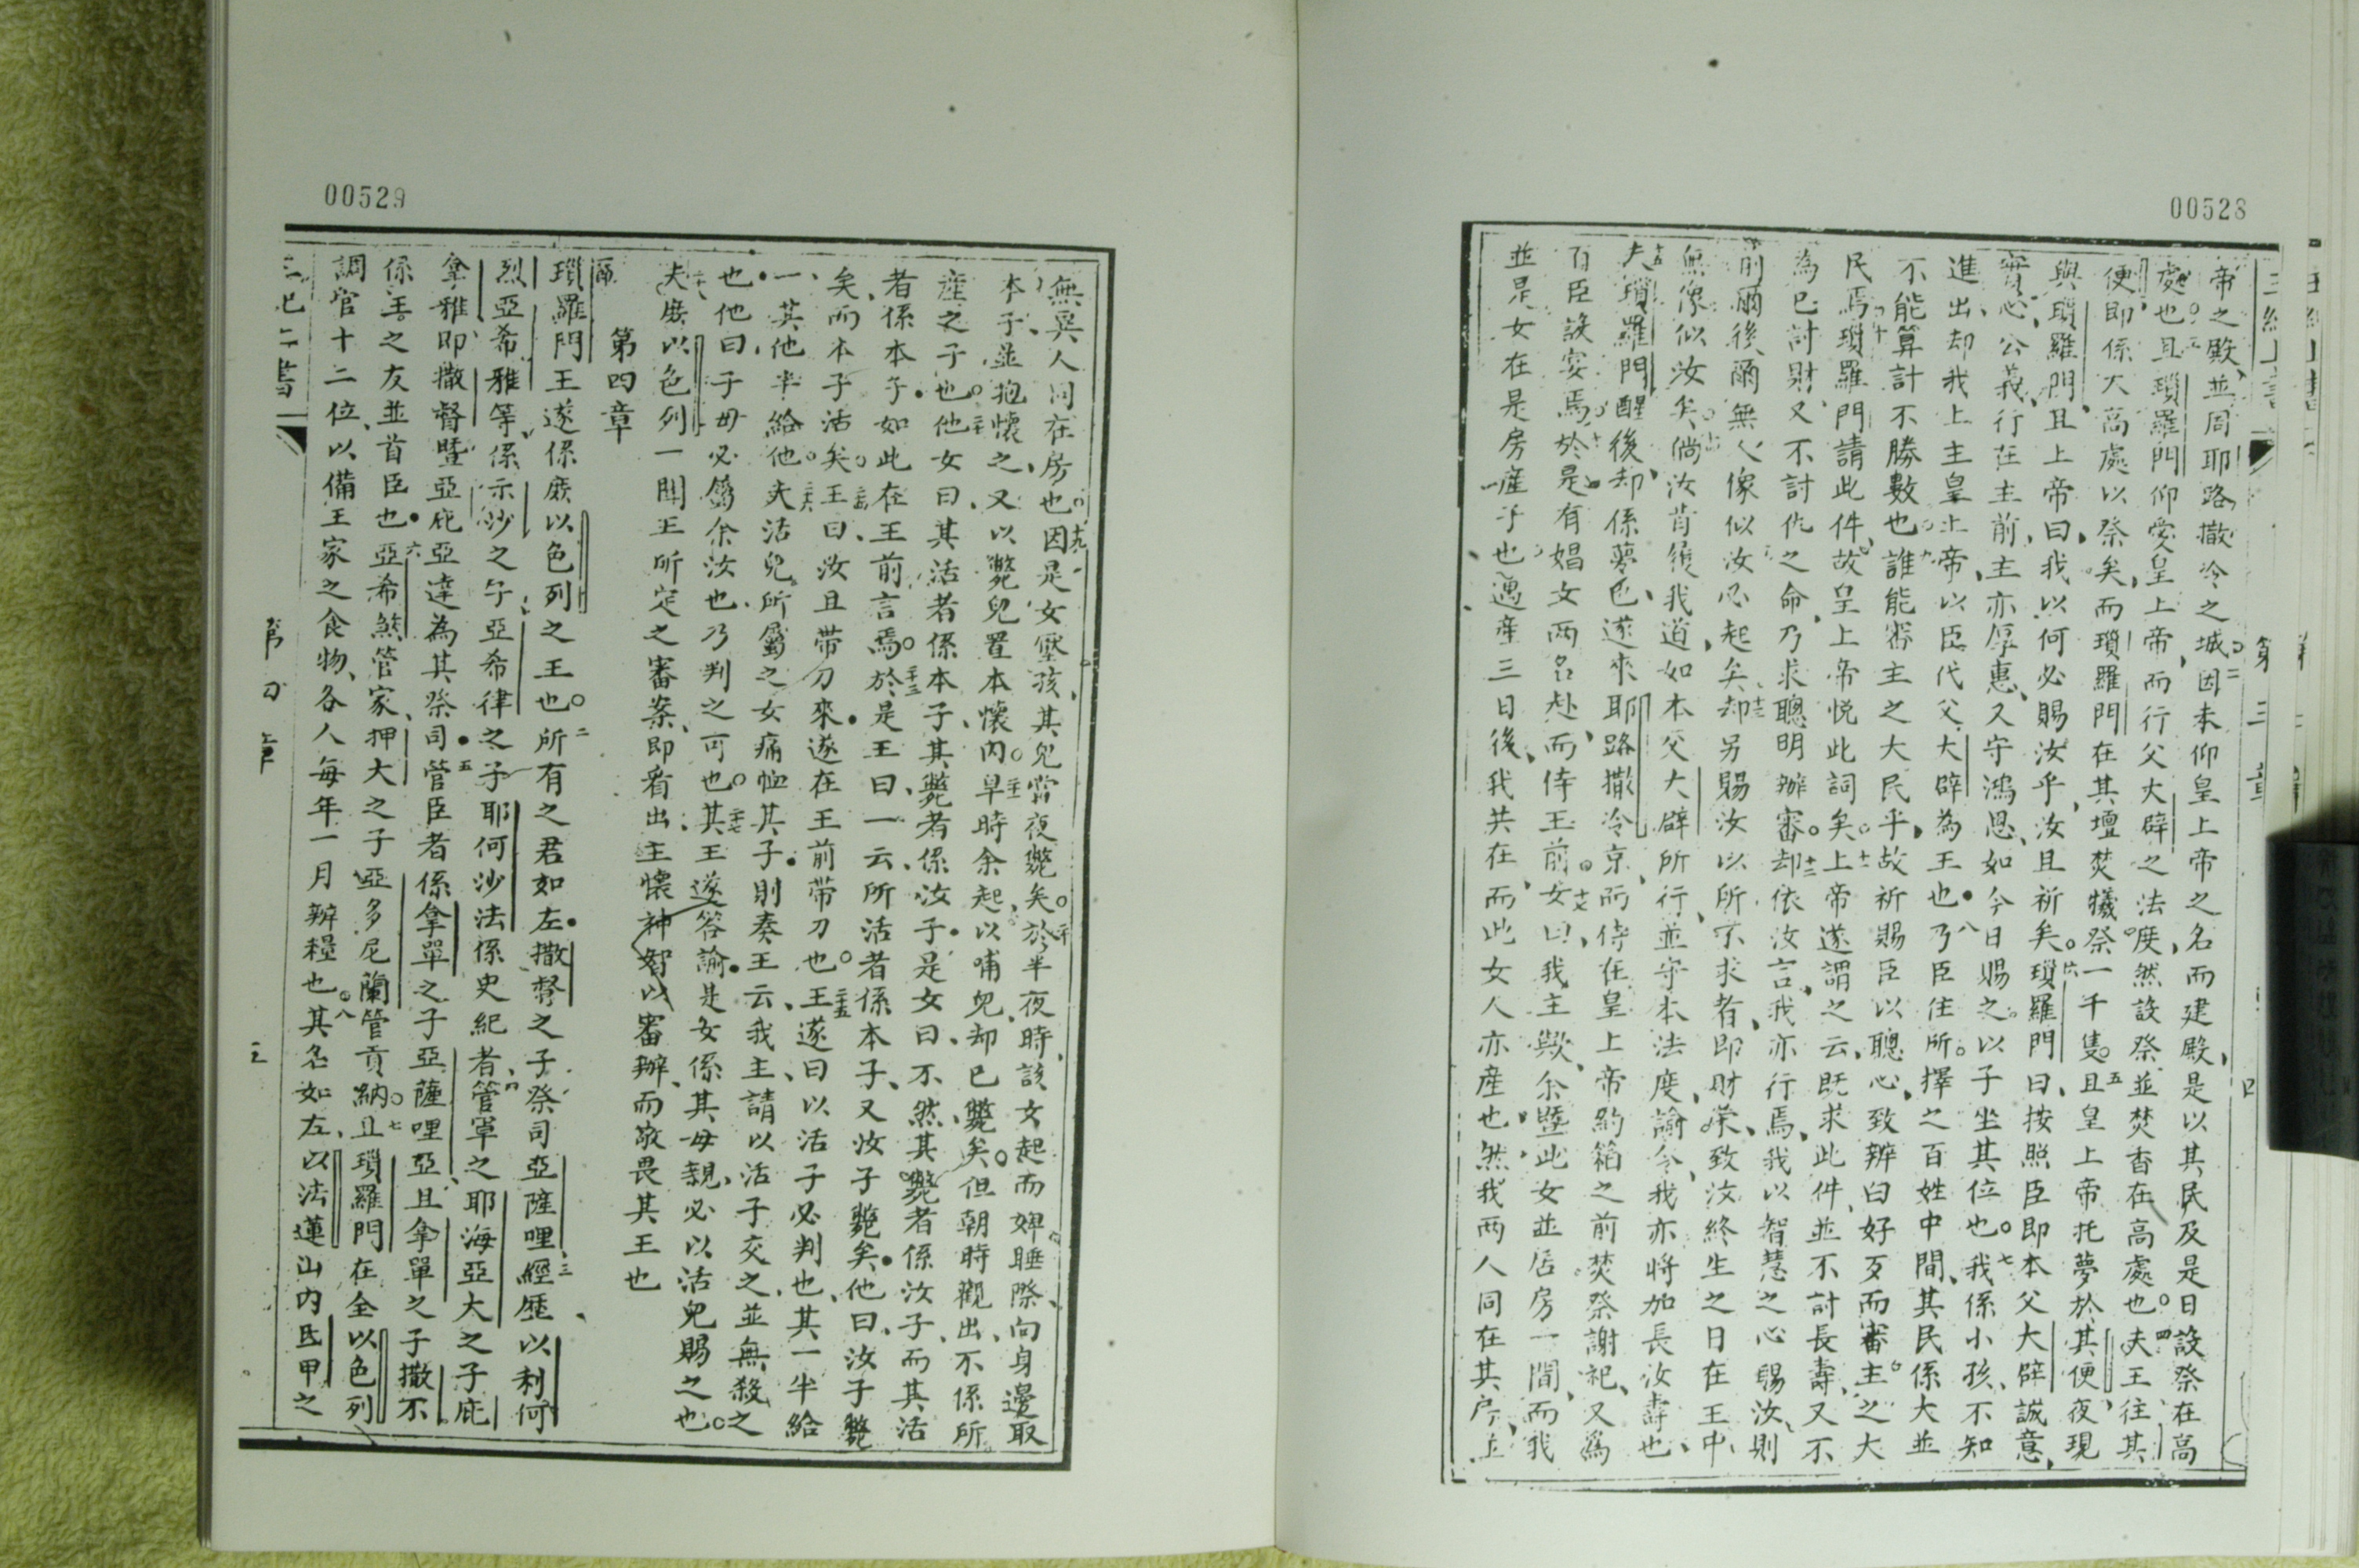 00528
帝之殿、並周耶路撒冷之城。二因未仰皇上帝之名而建殿、是以其民及是日設祭在高
處也。三且瑣羅門仰愛皇上帝、而行父大辟之法度、然設祭並焚香在高處也。四夫王往其
便、即係大高處以祭矣、而瑣羅門在其壇焚犧祭一千隻。五且皇上帝托夢於其便、夜現
與瑣羅門、且上帝曰、我以何必賜汝乎、汝且祈矣。六瑣羅門曰、按照臣即本父大辟誠意、
實心、公義、行在主前、主亦厚惠、又守鴻恩、如今日賜之。以子坐其位也。七我係小孩、不知
進出、却我上主皇上帝、以臣代父大辟為王也。八乃臣住所擇之百姓中間、其民係大並
不能算計不勝數也。九誰能審主之大民乎、故祈賜臣以聰心、致辨白好歹而審主之大
民焉。十瑣羅門請此件、故皇上帝悅此詞矣。十一上帝遂謂之云、既求此件、並不討長壽、又不
為己討財、又不討仇之命、乃求聰明辦審。十二却依汝言、我亦行焉、我以智慧之心賜汝、則
前爾後爾無人像似汝必起矣。十三却另賜汝以所不求者、即財榮、致汝終生之日在王中、
無像似汝矣。十四倘汝肯履我道、如本父大辟所行、並守本法度諭令、我亦將加長汝壽也、
十五夫瑣羅門醒後、却係夢也、遂來耶路撒冷京、而侍在皇上帝約箱之前、焚祭謝祀、又為
百臣設宴焉。十六於是有娼女兩名赴、而侍王前。十七女曰、我主歟、余曁此女並居房一間、而我
並是女在是房產子也、遇產三日後、我共在、而此女人亦產也、然我兩人同在其房、並
王紀上書
第三章
四
00529
無異人同在房也。十九因是女壓孩、其兒當夜斃矣。二十於半夜時、該女起而婢睡際、向身邊取
本子、並抱懷之、又以斃兒置本懷內。二十一早時余起以哺兒、却已斃矣。但朝時觀出、不係所
產之子也。二十二他女曰、其活者係本子、其斃者係汝子。是女曰、不然、其斃者係汝子、而其活
者係本子。如此在王前言焉。二十三於是王曰、一云所活者係本子、又汝子斃矣。他曰、汝子斃
矣、而本子活矣。二十四王曰、汝且帶刀來。遂在王前帶刀也。二十五王遂曰、以活子必判也、其一半給
一、其他半給他。二十六夫活兒所屬之女痛恤其子。則奏王云、我主、請以活子交之、並無殺之
也、他曰、子毋必屬余汝也、乃判之可也。二十七其王遂答諭。是女係其母親、必以活兒賜之也。
二十八夫庶以色列一聞王所定之審案、即看出、主懷神智以審辦、而敬畏其王也
第四章
瑣羅門王遂係庶以色列之王也。二所有之君如左。撒督之子祭司亞薩哩、三經歷以利何
烈亞希雅等、係示沙之子、亞希律之子耶何沙法係史紀者、四管軍之耶海亞大之子庇
拿雅、即撒督曁亞庇亞達為其祭司。五管臣者係拿單之子亞薩哩亞、且拿單之子撒不
係王之友並首臣也。六亞希煞管家、押大之子亞多尼蘭管貢納。七且瑣羅門在全以色列
調官十二位、以備王家之食物、各人每年一月辦糧也。八其名如左、以法蓮山內毘甲之
第四章